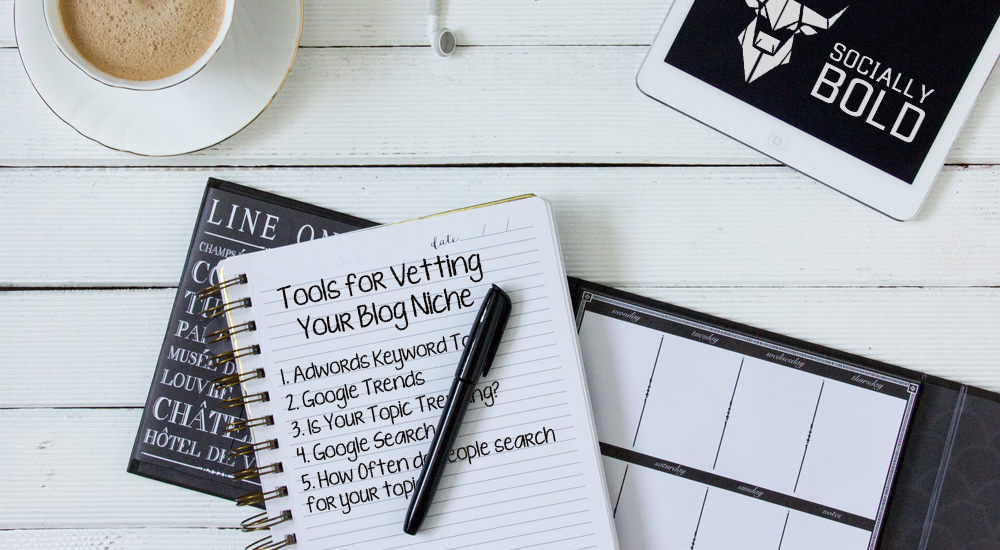 SOCIALLY
BOLD
LINE
CHAMPS
PA
MUSÉE D
LOUVRE
CHÂTE
HÔTEL DE V
date / /
Tools for Vetting
Your Blog Niche
1. Adwords Keyword To
2. Google Trends
3. Is Your Topic Trending?
4. Google Search
5. How Often do people search
for your topic
monday
tuesday
wednesday
thursday
saturday
sunday
notes